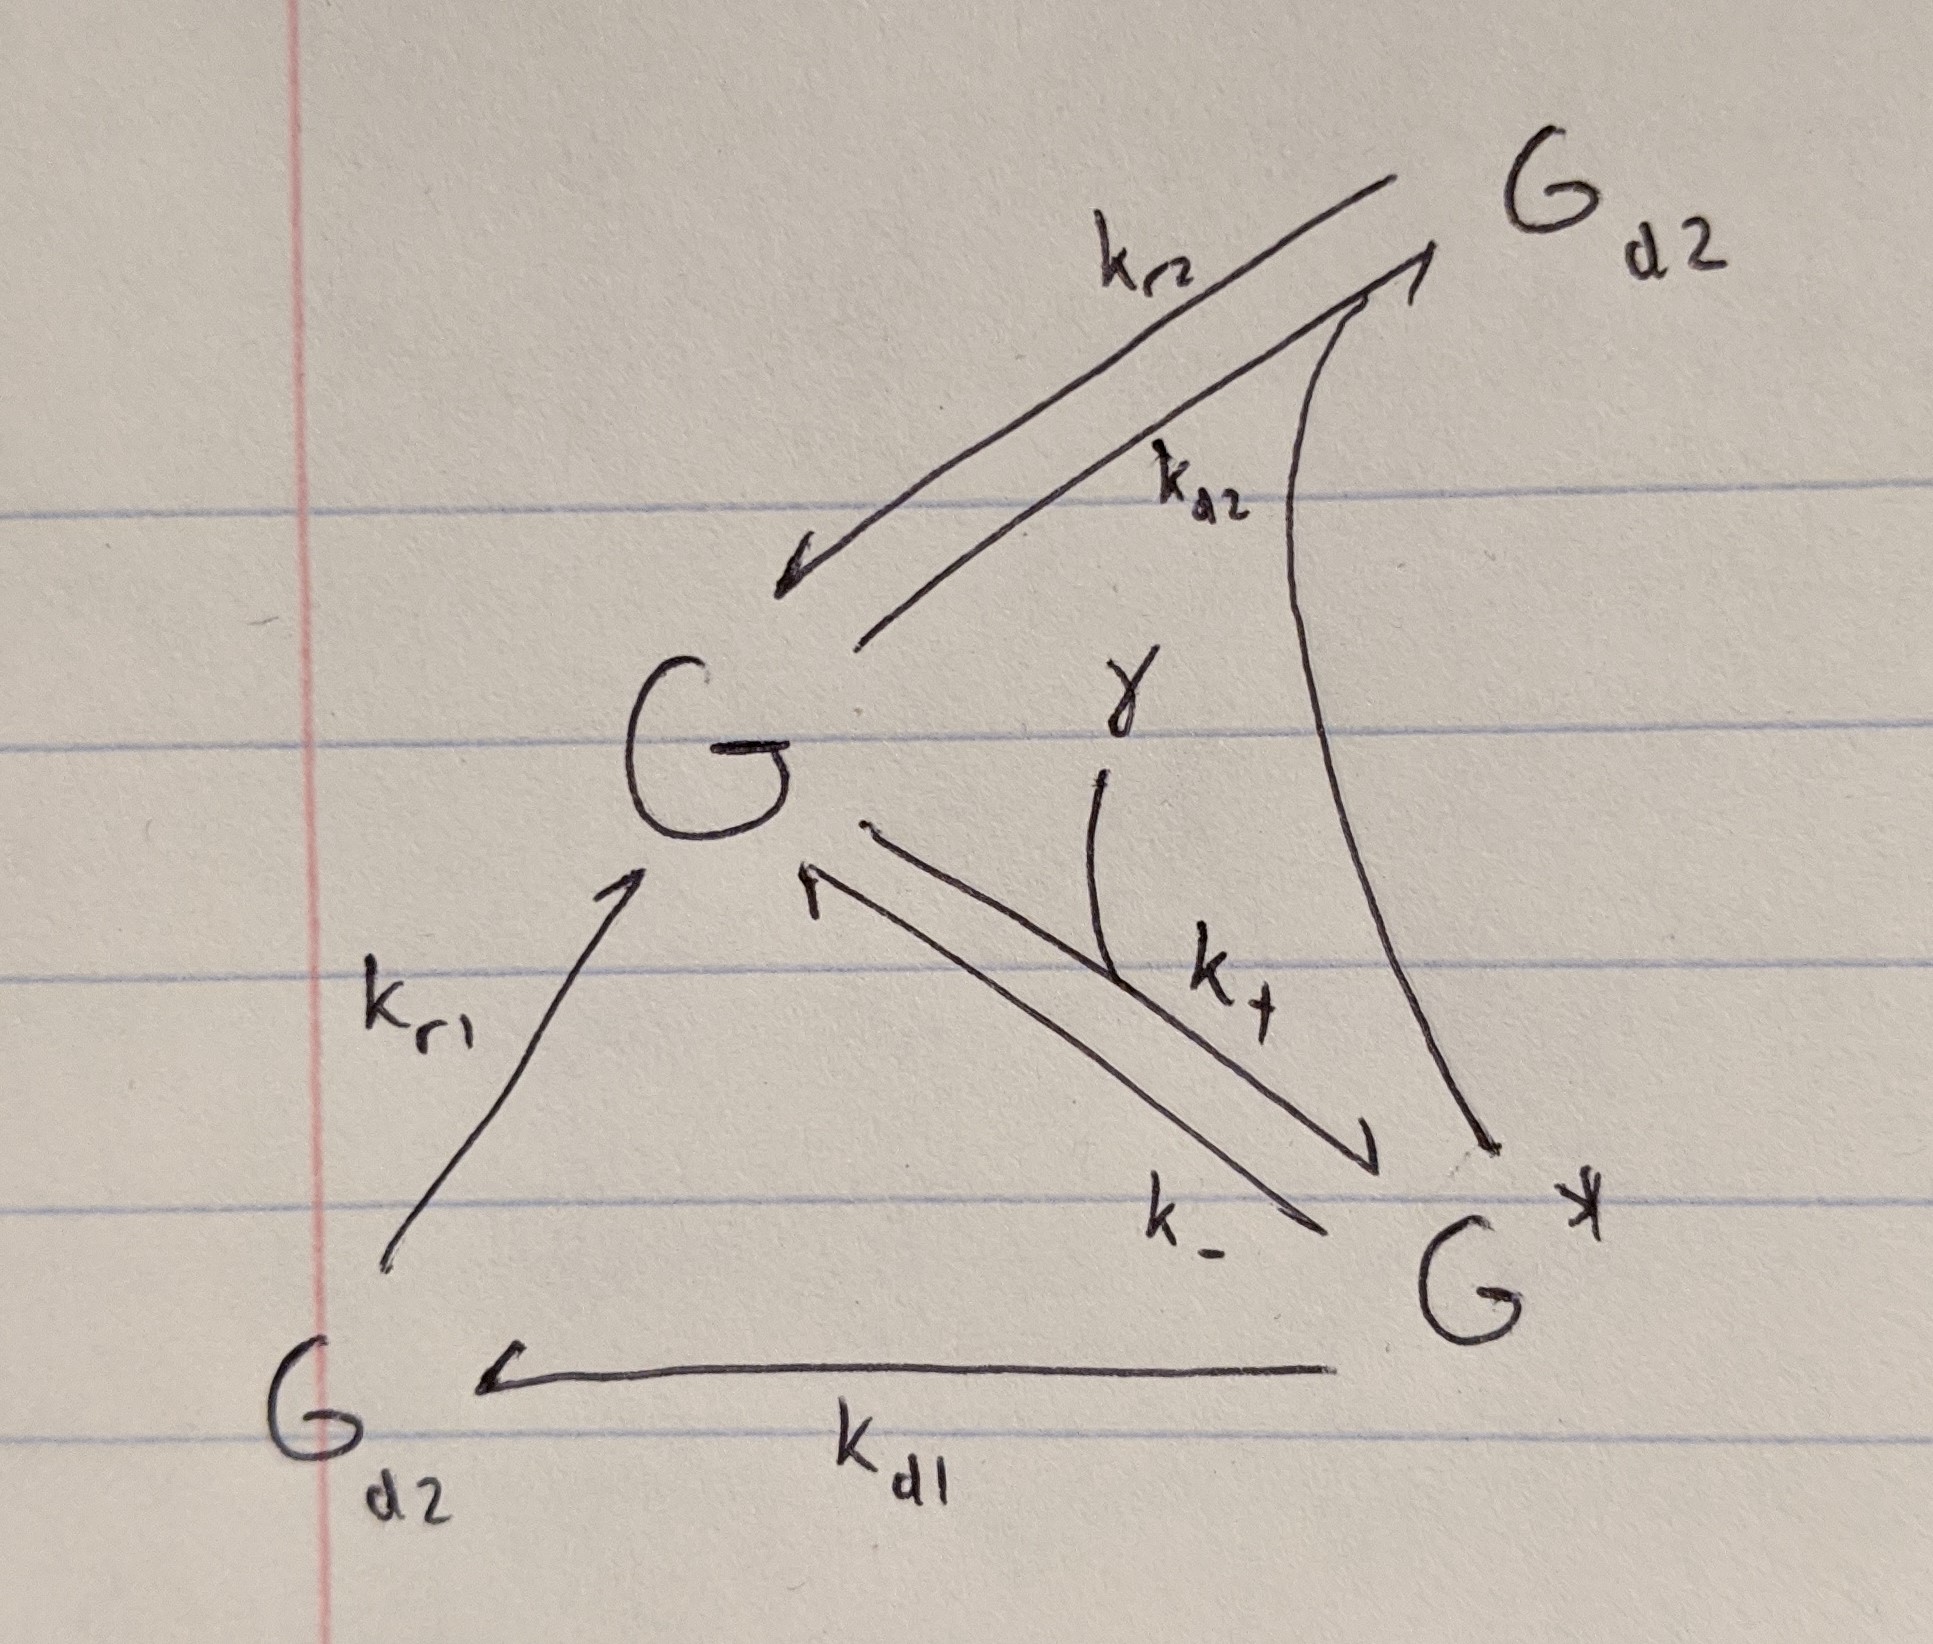 G_d2
k_r2
k_d2
G
γ
k_+
k_r1
k_-
G*
G_d2
k_d1